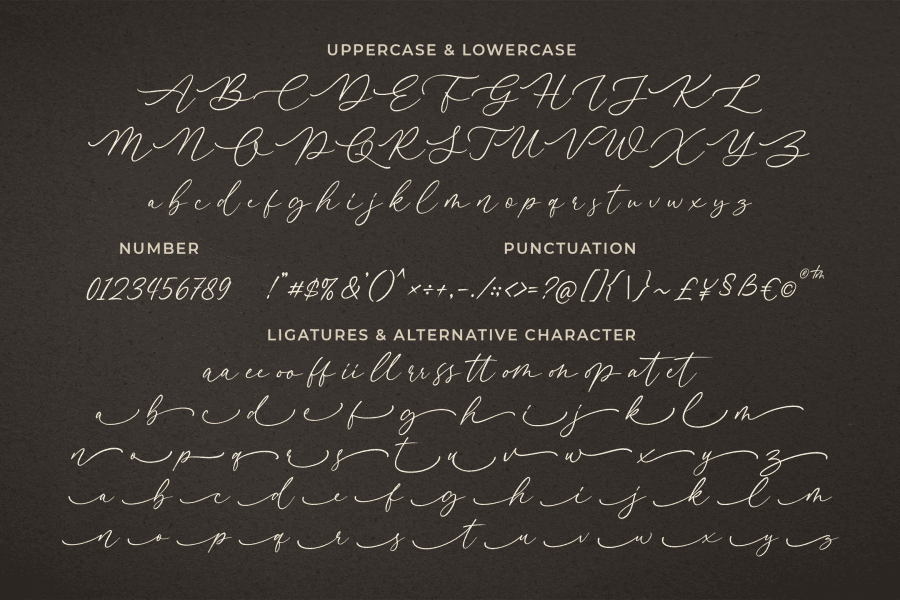 UPPERCASE & LOWERCASE
A B C D E F G H I J K L
M N O P Q R S T U V W X Y Z
a b c d e f g h i j k l m n o p q r s t u v w x y z
NUMBER PUNCTUATION
0123456789 !"#$%&'()^×÷+,-./:;<>=?@[]{|}~£¥§ß€©®™
LIGATURES & ALTERNATIVE CHARACTER
aa ee oo ff ii ll rr ss tt om on op at et
a b c d e f g h i j k l m
n o p q r s t u v w x y z
a b c d e f g h i j k l m
n o p q r s t u v w x y z